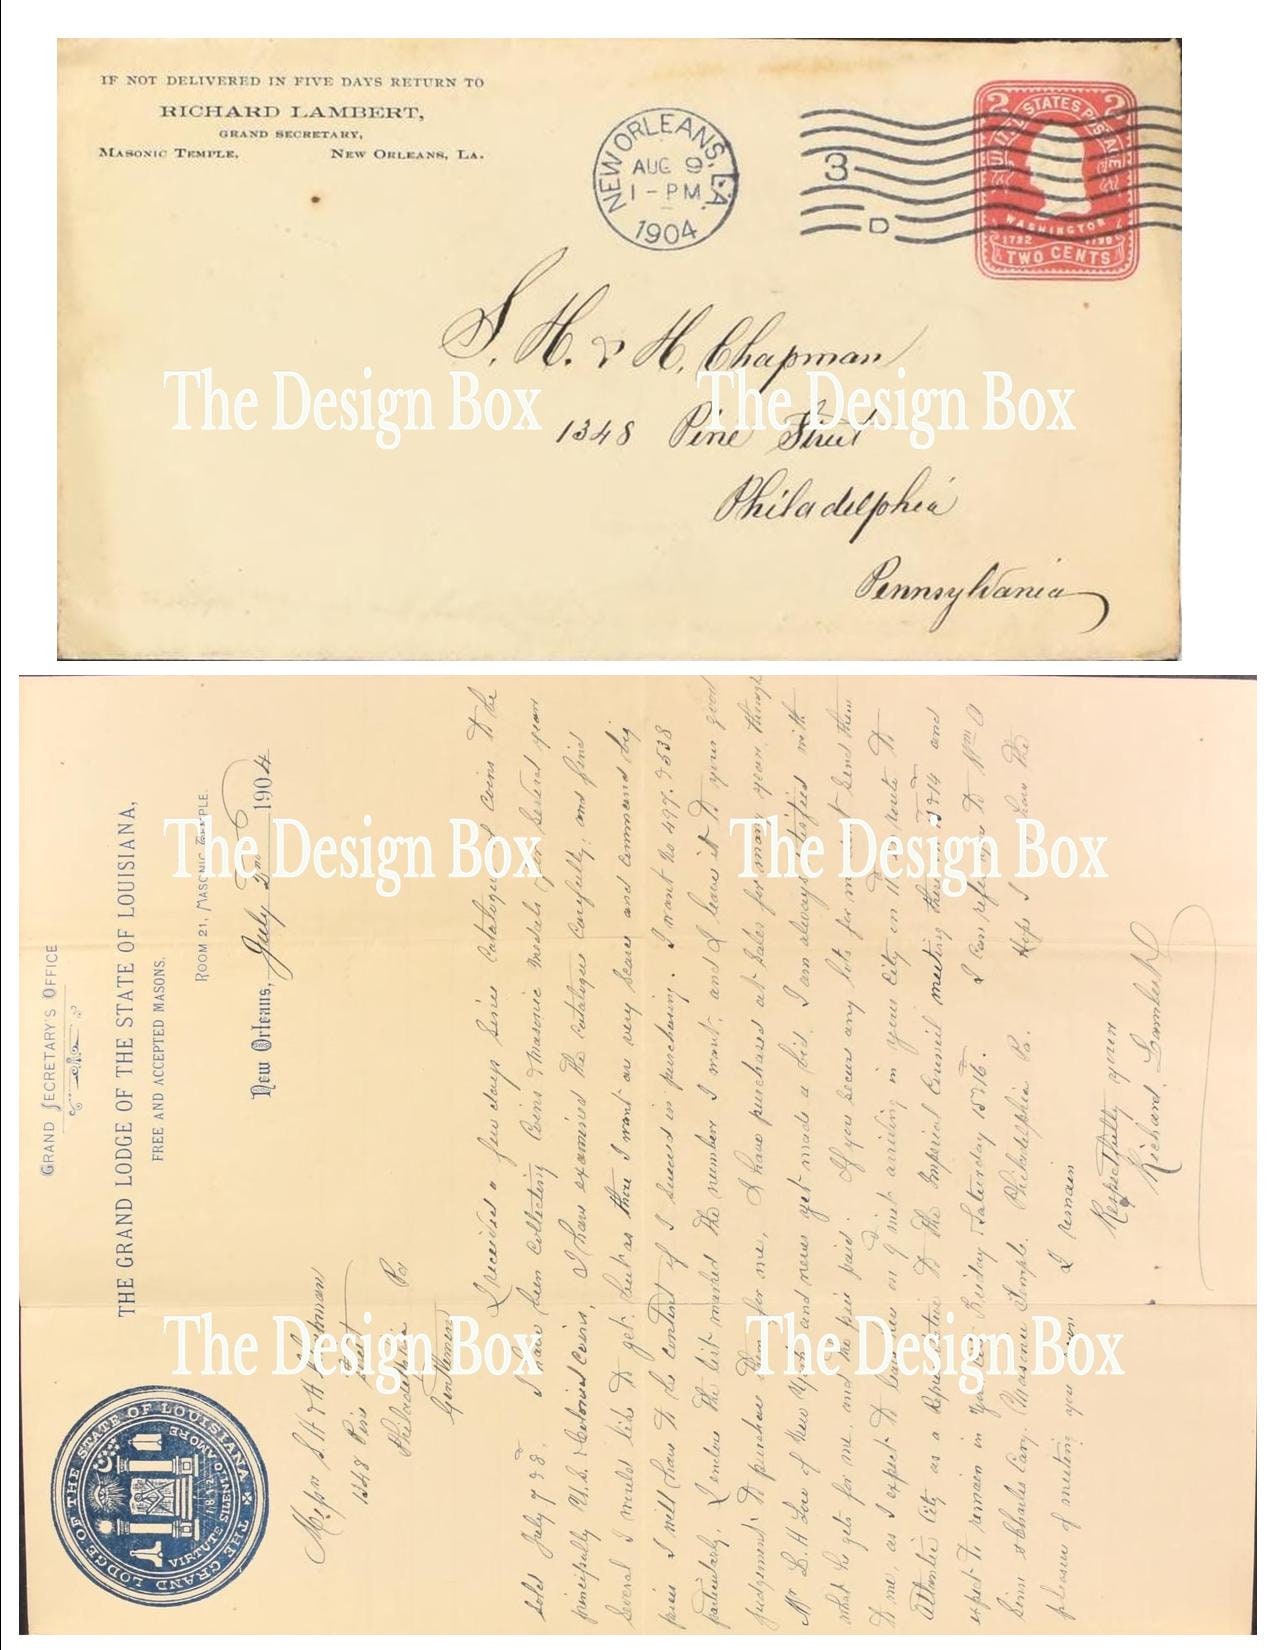 IF NOT DELIVERED IN FIVE DAYS RETURN TO
RICHARD LAMBERT,
GRAND SECRETARY,
MASONIC TEMPLE, NEW ORLEANS, LA.
NEW ORLEANS, LA.
AUG 9
1-PM
1904
3
D
UNITED STATES POSTAGE
2 2
WASHINGTON
1732 1799
TWO CENTS
S. H. & H. Chapman
1348 Pine Street
Philadelphia
Pennsylvania
The Design Box The Design Box
THE GRAND LODGE OF THE STATE OF LOUISIANA
VIRTUTE SILENTIO AMORE
1812
GRAND SECRETARY'S OFFICE
THE GRAND LODGE OF THE STATE OF LOUISIANA,
FREE AND ACCEPTED MASONS.
ROOM 21, MASONIC TEMPLE.
New Orleans, July 2nd 1904
Messrs S. H. & H. Chapman
1348 Pine Street
Philadelphia Pa
Gentlemen
I received a few days since Catalogue of Coins to be
sold July 7 & 8. I have been collecting Coins & Masonic Medals for several years
principally U.S. & Colonial Coins, I have examined the Catalogue carefully; and find
several I would like to get; but as those I want are very scarce and command big
prices I will have to be content if I succeed in purchasing. I want No 497. & 538
particularly. I enclose the list marked the numbers I want, and I leave it to your good
judgement to purchase them for me. I have purchased at sales for many years through
Mr L. H Low of New York and never yet made a bid. I am always satisfied with
what he gets for me, and the price paid. If you secure any lots for me do not send them
to me, as I expect to leave here on 9 inst arriving in your City on 11th en route to
Atlantic City as a Representative to the Imperial Council meeting there 13 & 14 and
expect to remain in your City Friday & Saturday 15 & 16. I can refer you to Wm A
Sinn & Charles Cary. Masonic Temple. Philadelphia Pa. Hope I have the
pleasure of meeting you soon I remain
Respectfully yours
Richard Lambert
The Design Box The Design Box
The Design Box The Design Box